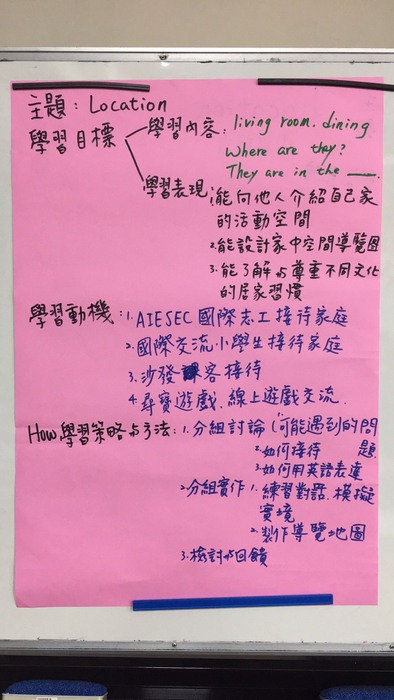 主題：Location
學習目標 學習內容：living room. dining
Where are they?
They are in the ____.
學習表現：1.能向他人介紹自己家
的活動空間
2.能設計家中空間導覽圖
3.能了解与尊重不同文化
的居家習慣
學習動機：1.AIESEC國際志工接待家庭
2.國際交流小學生接待家庭
3.沙發客接待
4.尋寶遊戲.線上遊戲交流.
How學習策略与方法：1.分組討論(1.可能遇到的問
題
2.如何接待
3.如何用英語表達
2.分組實作1.練習對話.模擬
實境
2.製作導覽地圖
3.檢討与回饋